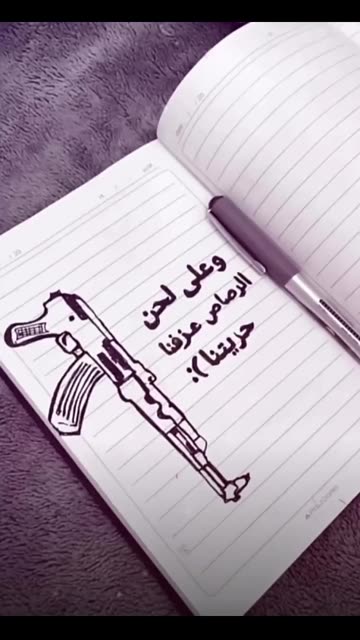 وعلى لحن
الرصاص عزفنا
حريتنا ):